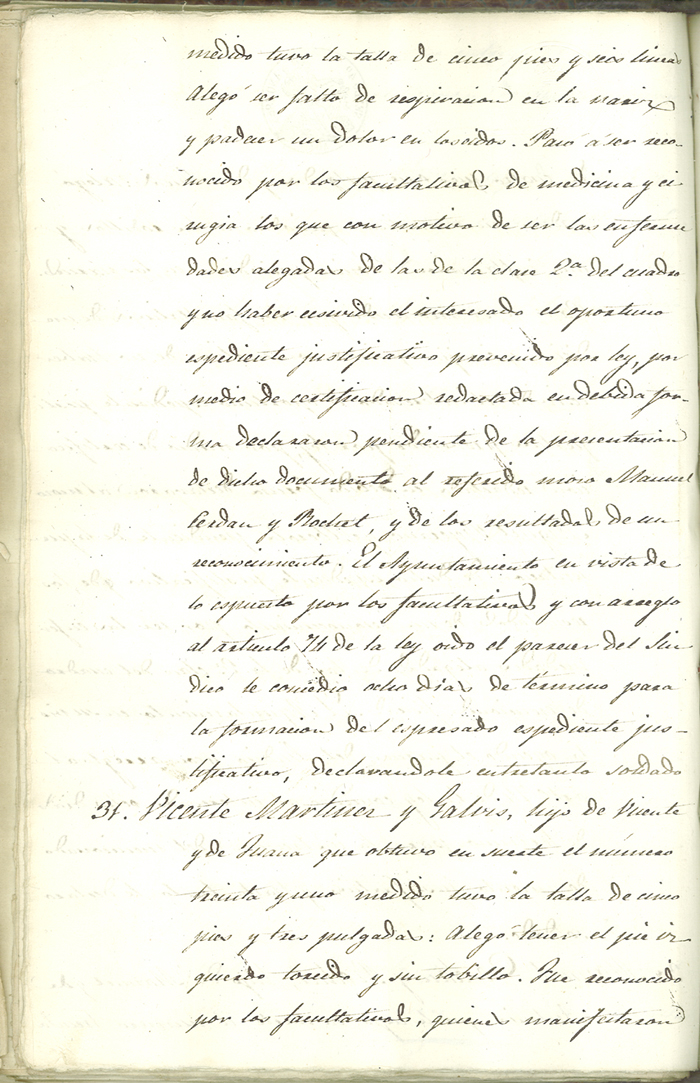 medido tuvo la talla de cinco pies y seis lineas
Alegó ser falto de respiracion en la nariz
y padecer un dolor en los oidos. Pasó á ser reco-
nocido por los facultativos de medicina y ci
rugia los que con motivo de ser las enferme
dades alegadas de las de la clase 2.ª del cuadro
y no haber el interesado el oportuno
espediente justificativo prevenido por ley, por
medio de certificacion redactada en debida for-
ma declararon pendiente de la presentacion
de dicho documento al referido mozo Manuel
Cerdan y Rochet, y de los resultados de un
reconocimiento. El Ayuntamiento en vista de
lo espuesto por los facultativos y con arreglo
al articulo 74 de la ley oido el parecer del Sin
dico le concedio ocho dias de término para
la formacion del espresado espediente jus-
tificativo, declarandole entretanto soldado
31. Vicente Martinez y Galvis, hijo de Vicente
y de Juana que obtuvo en suerte el número
treinta y uno medido tuvo la talla de cinco
pies y tres pulgadas: Alegó tener el pie iz
quierdo torcido y sin tobillo. Fue reconocido
por los facultativos, quienes manifestaron